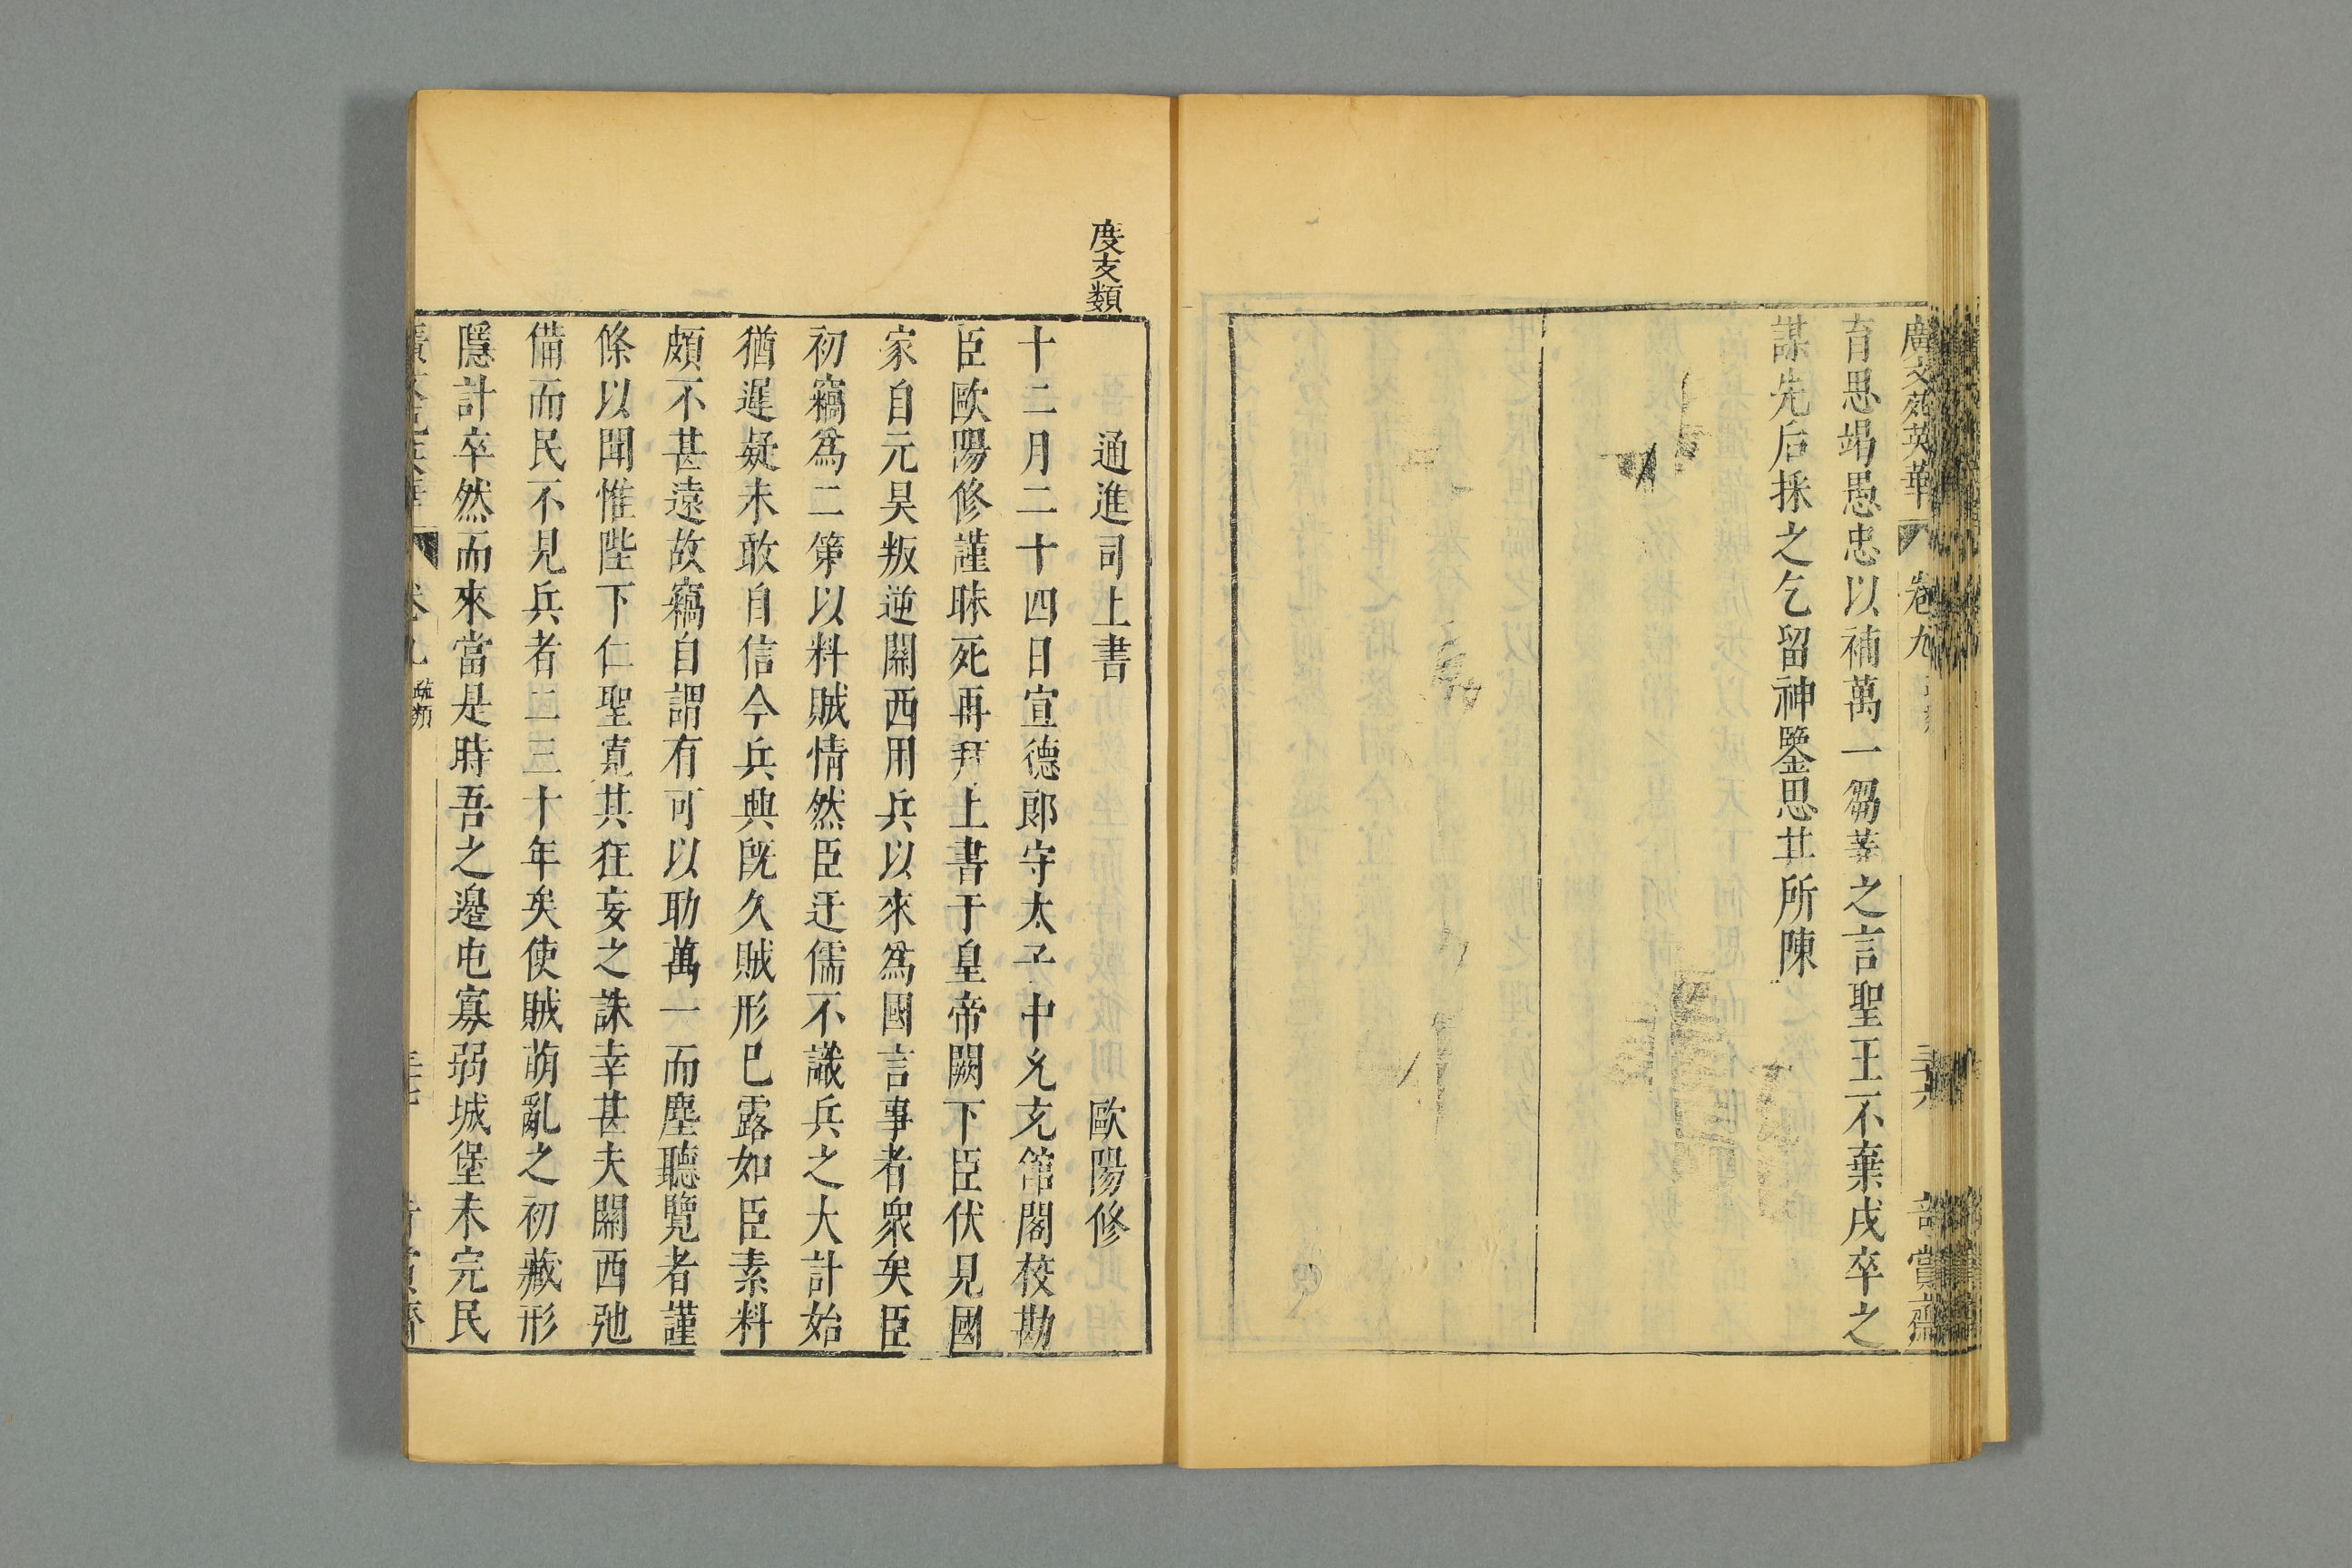 廣文苑英華 卷九
育思竭愚忠以補萬一芻蕘之言聖王不棄戌卒之
謀先后採之乞留神鑒思其所陳
度支類
通進司上書 歐陽修
十二月二十四日宣德郎守太子中允充舘閣校勘
臣歐陽修謹昧死再拜上書于皇帝闕下臣伏見國
家自元昊叛逆關西用兵以來為國言事者衆矣臣
初竊為二策以料賊情然臣迂儒不識兵之大計始
猶遲疑未敢自信今兵興既久賊形已露如臣素料
頗不甚遠故竊自謂有可以助萬一而塵聽覽者謹
條以聞惟陛下仁聖寬其狂妄之誅幸甚夫關西弛
備而民不見兵者二三十年矣使賊萌亂之初藏形
隱計卒然而來當是時吾之邊屯寡弱城堡未完民